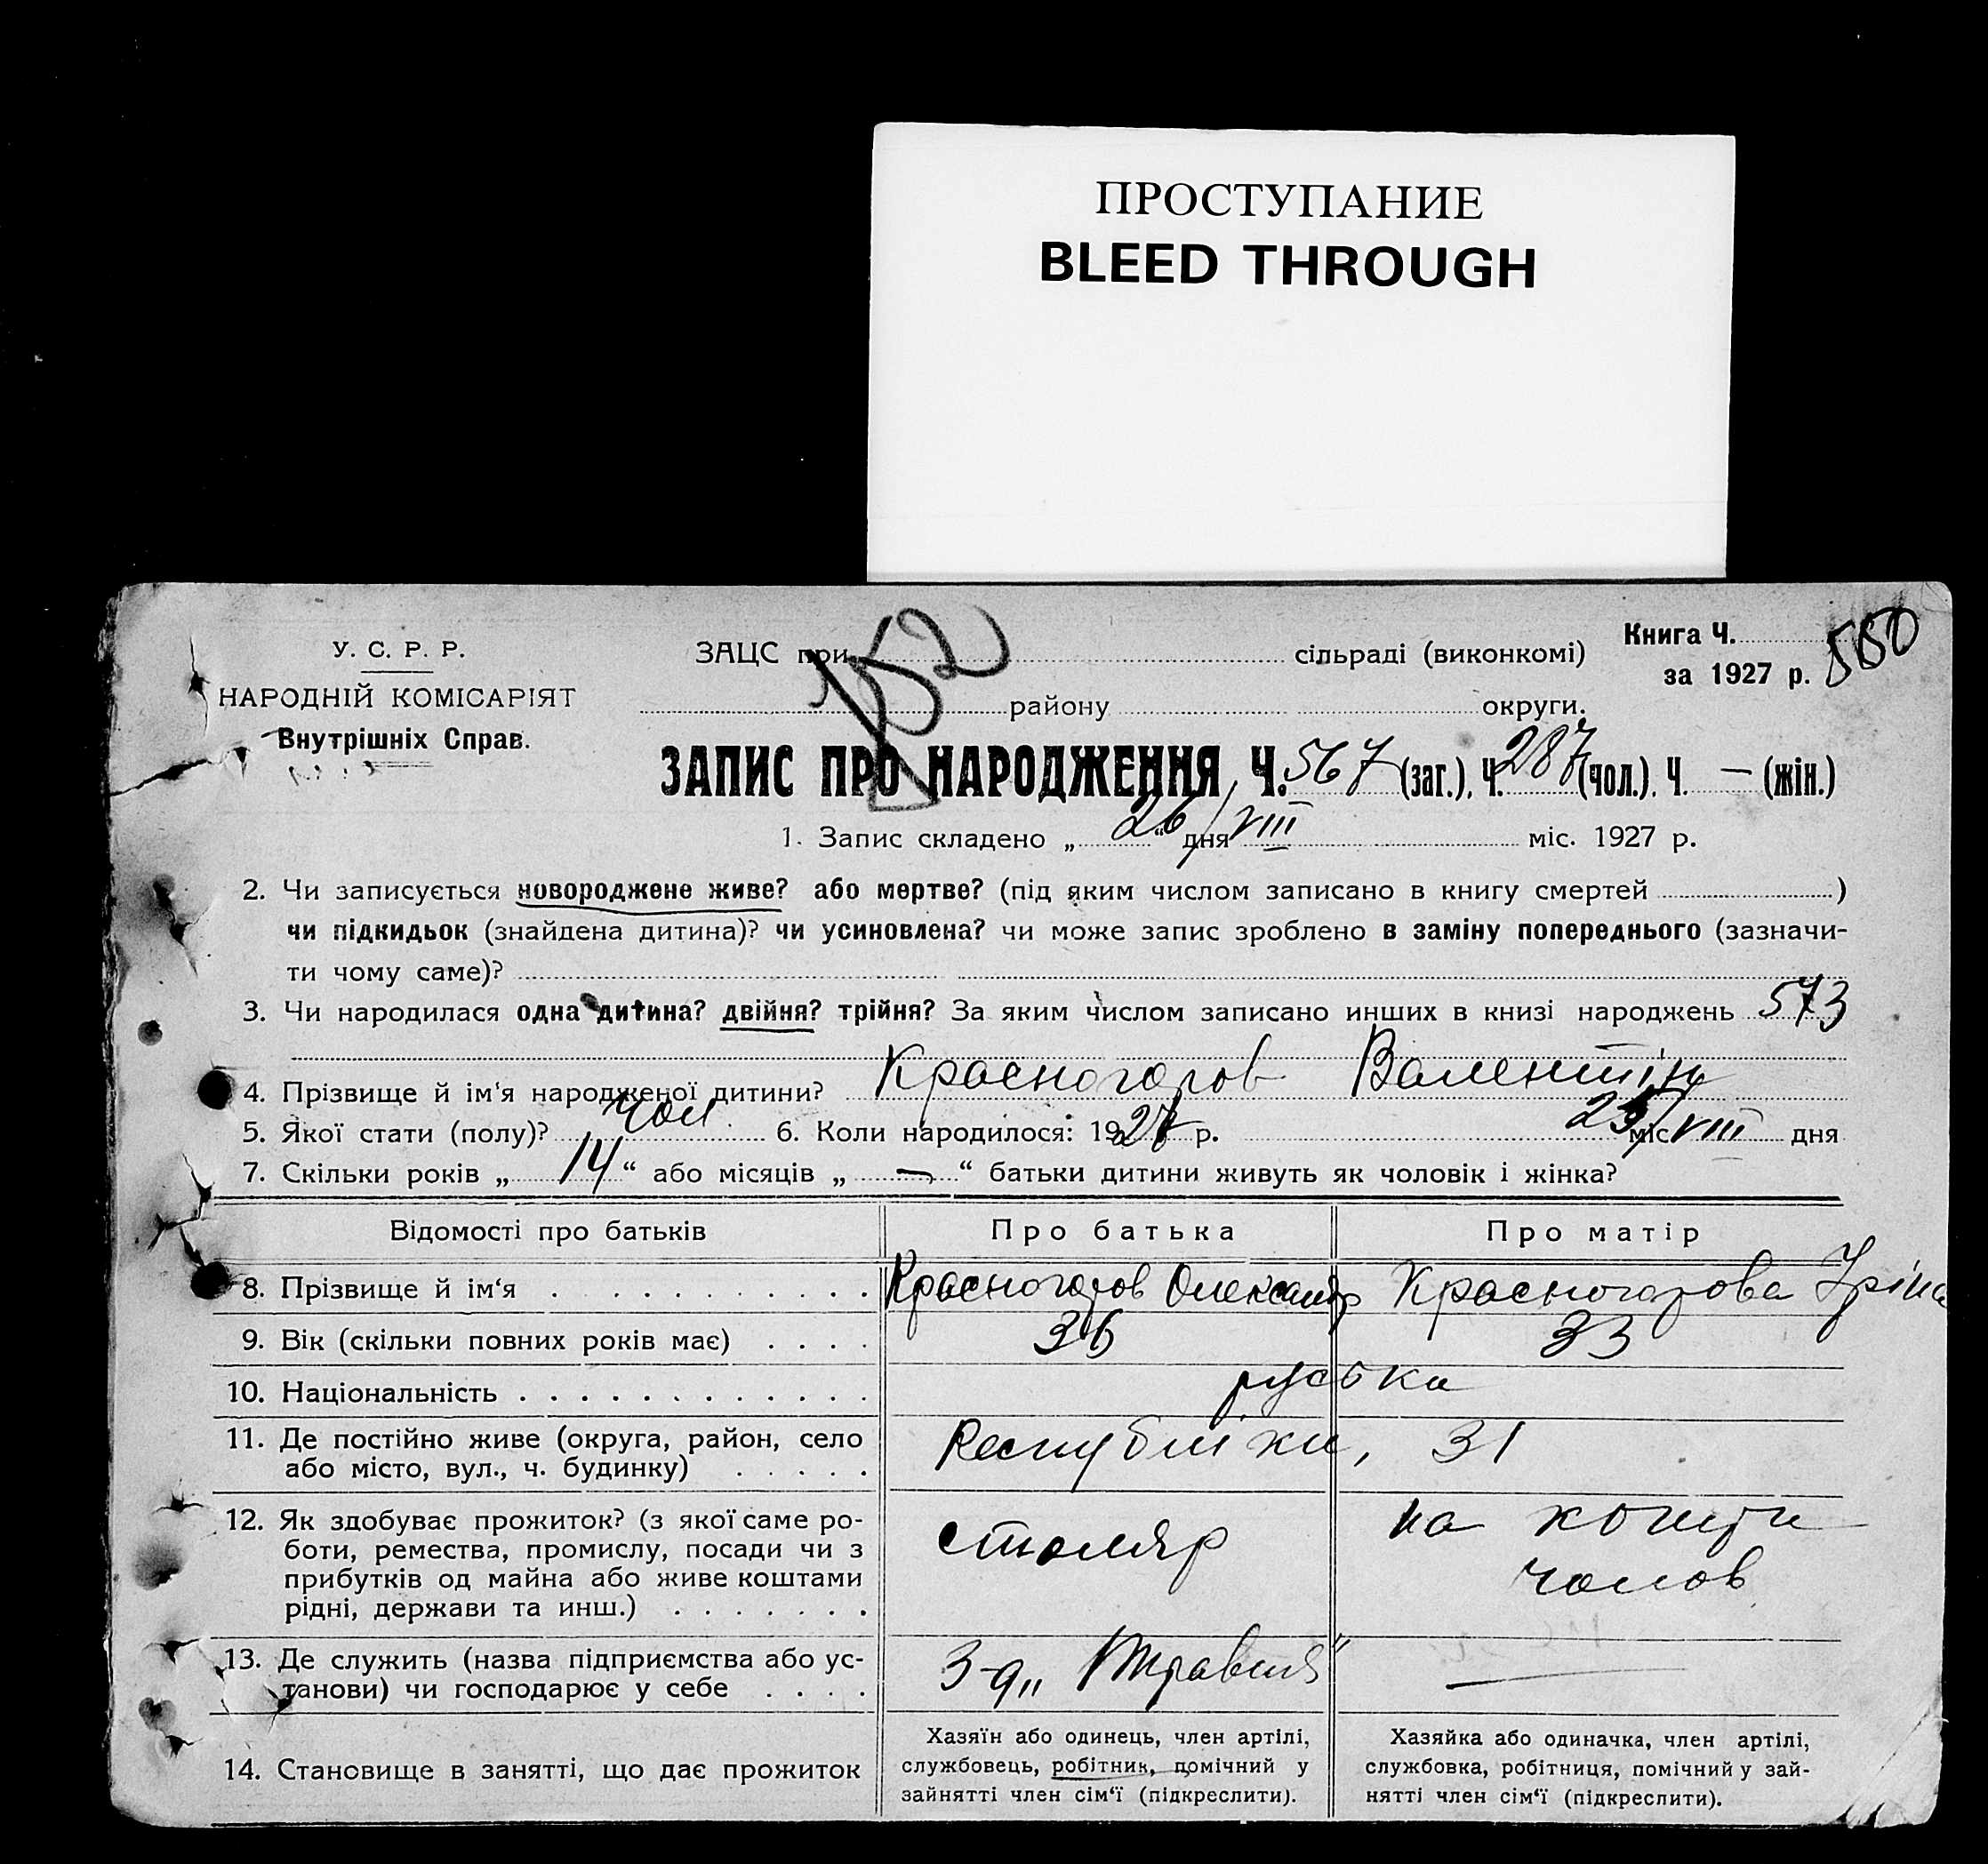 ПРОСТУПАНИЕ
BLEED THROUGH
У. С. Р. Р.
НАРОДНІЙ КОМІСАРІЯТ
Внутрішніх Справ.
152
ЗАЦС при сільраді (виконкомі)
Книга Ч. 550
за 1927 р.
району округи.
ЗАПИС ПРО НАРОДЖЕННЯ Ч. 567 (заг.), Ч. 287 (чол.). Ч. — (жін.)
1. Запис складено „ 26 “ дня VIII міс. 1927 р.
2. Чи записується новороджене живе? або мертве? (під яким числом записано в книгу смертей )
чи підкидьок (знайдена дитина)? чи усиновлена? чи може запис зроблено в заміну попереднього (зазначи-
ти чому саме)?
3. Чи народилася одна дитина? двійня? трійня? За яким числом записано инших в книзі народжень 573
4. Прізвище й ім‘я народженої дитини? Красногоров Валентін
5. Якої стати (полу)? чол. 6. Коли народилося: 1927 р. 25/VIII міс. дня
7. Скільки років „ 14 “ або місяців „ — “ батьки дитини живуть як чоловік і жінка?
Відомості про батьків Про батька Про матір
8. Прізвище й ім‘я . . . . . . . . . . . Красногоров Олександр Красногорова Іріна
9. Вік (скільки повних років має) . . . . 36 33
10. Національність . . . . . . . . . . . . руська
11. Де постійно живе (округа, район, село
або місто, вул., ч. будинку) . . . . . Республіки, 31
12. Як здобуває прожиток? (з якої саме ро-
боти, ремества, промислу, посади чи з
прибутків од майна або живе коштами
рідні, держави та инш.) . . . . . . .
столяр
на кошти
чолов
13. Де служить (назва підприємства або ус-
танови) чи господарює у себе . . . .
З-д „ Травня“ —
14. Становище в занятті, що дає прожиток
Хазяїн або одинець, член артілі,
службовець, робітник, помічний у
зайнятті член сім‘ї (підкреслити).
Хазяйка або одиначка, член артілі,
службовка, робітниця, помічний у зай-
нятті член сім‘ї (підкреслити).